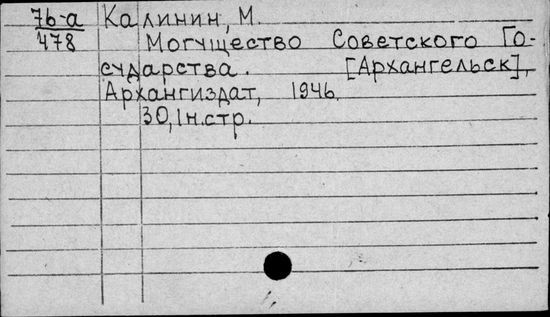 7b-a Калинин, М.
478 Могущество Советского Го-
сударства. [Архангельск],
Архангиздат, 1946.
30,1н.стр.